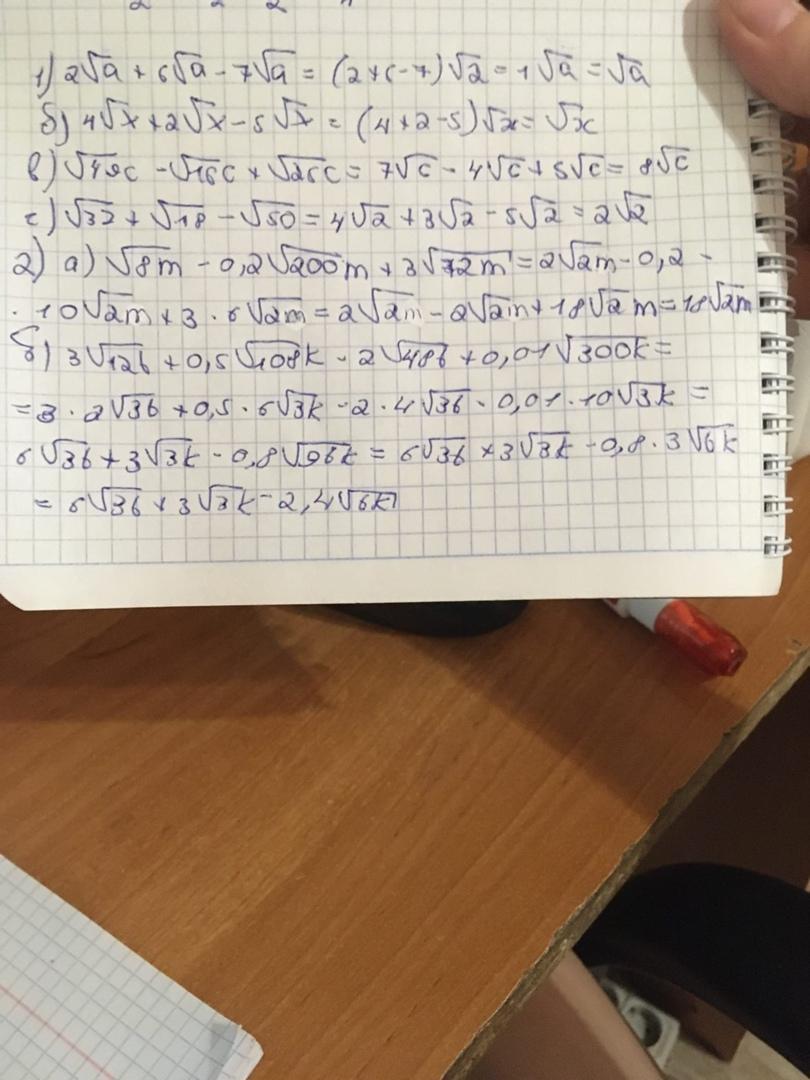 1) 2√a + 6√a - 7√a = (2+6-7)√2 = 1√a = √a
б) 4√x + 2√x - 5√x = (4+2-5)√x = √x
в) √49c - √16c + √25c = 7√c - 4√c + 5√c = 8√c
г) √32 + √18 - √50 = 4√2 + 3√2 - 5√2 = 2√2
2) а) √8m - 0,2√200m + 3√72m = 2√2m - 0,2 ·
· 10√2m + 3 · 6√2m = 2√2m - 2√2m + 18√2m = 18√2m
б) 3√12b + 0,5√108k - 2√48b + 0,01√300k =
= 3 · 2√3b + 0,5 · 6√3k - 2 · 4√3b · 0,01 · 10√3k =
6√3b + 3√3k - 0,8√96k = 6√3b + 3√3k - 0,8 · 3√6k
= 6√3b + 3√3k - 2,4√6k